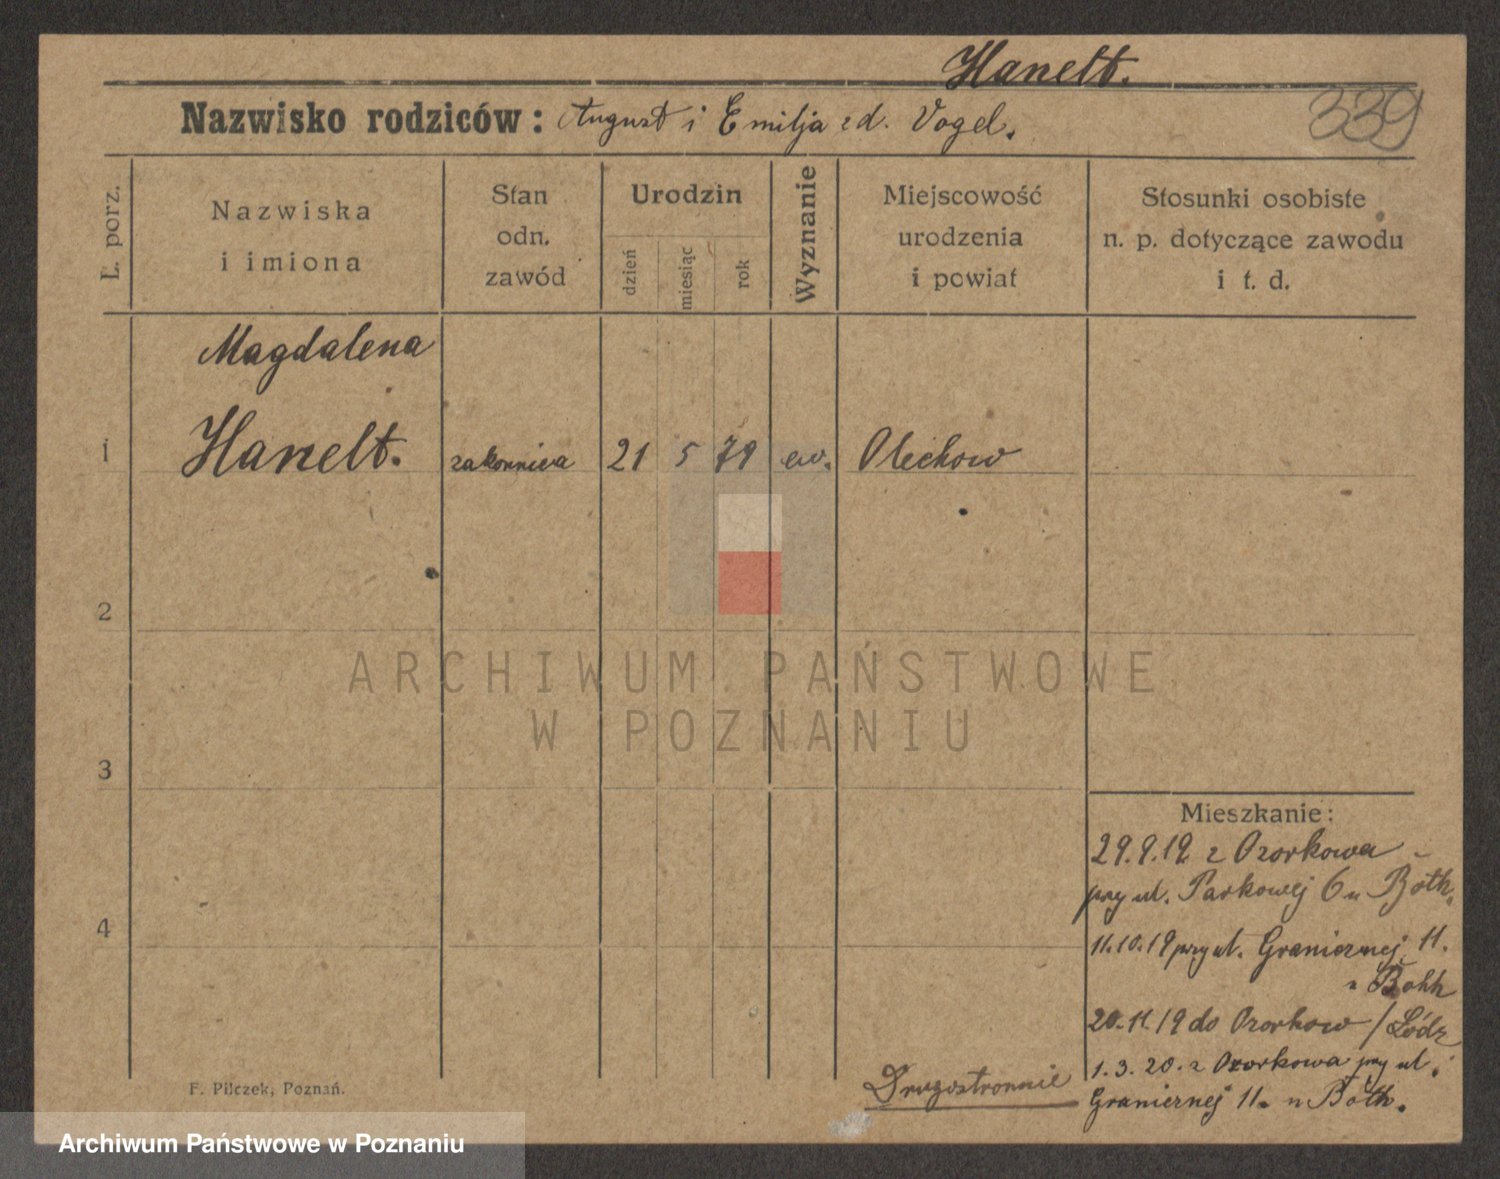 Hanelt.
339
Nazwisko rodziców: August i Emilja zd. Vogel.
L. porz.
Nazwiska
i imiona
Stan
odn.
zawód
Urodzin
dzień
miesiąc
rok
Wyznanie
Miejscowość
urodzenia
i powiat
Stosunki osobiste
n. p. dotyczące zawodu
i t. d.
Magdalena
1 Hanelt. zakonnica 21 5 79 ew. Olechow
2
ARCHIWUM PAŃSTWOWE
W POZNANIU
3
Mieszkanie:
29.9.19 z Ozorkowa
przy ul. Parkowej 6 u Both.
4
11.10.19 przy ul. Granicznej 11.
u
20.11.19 do Ozorkow / Łódz
1.3.20. z Ozorkowa przy ul.
Granicznej 11. u Both.
Drugostronnie
F. Pilczek, Poznań.
Archiwum Państwowe w Poznaniu